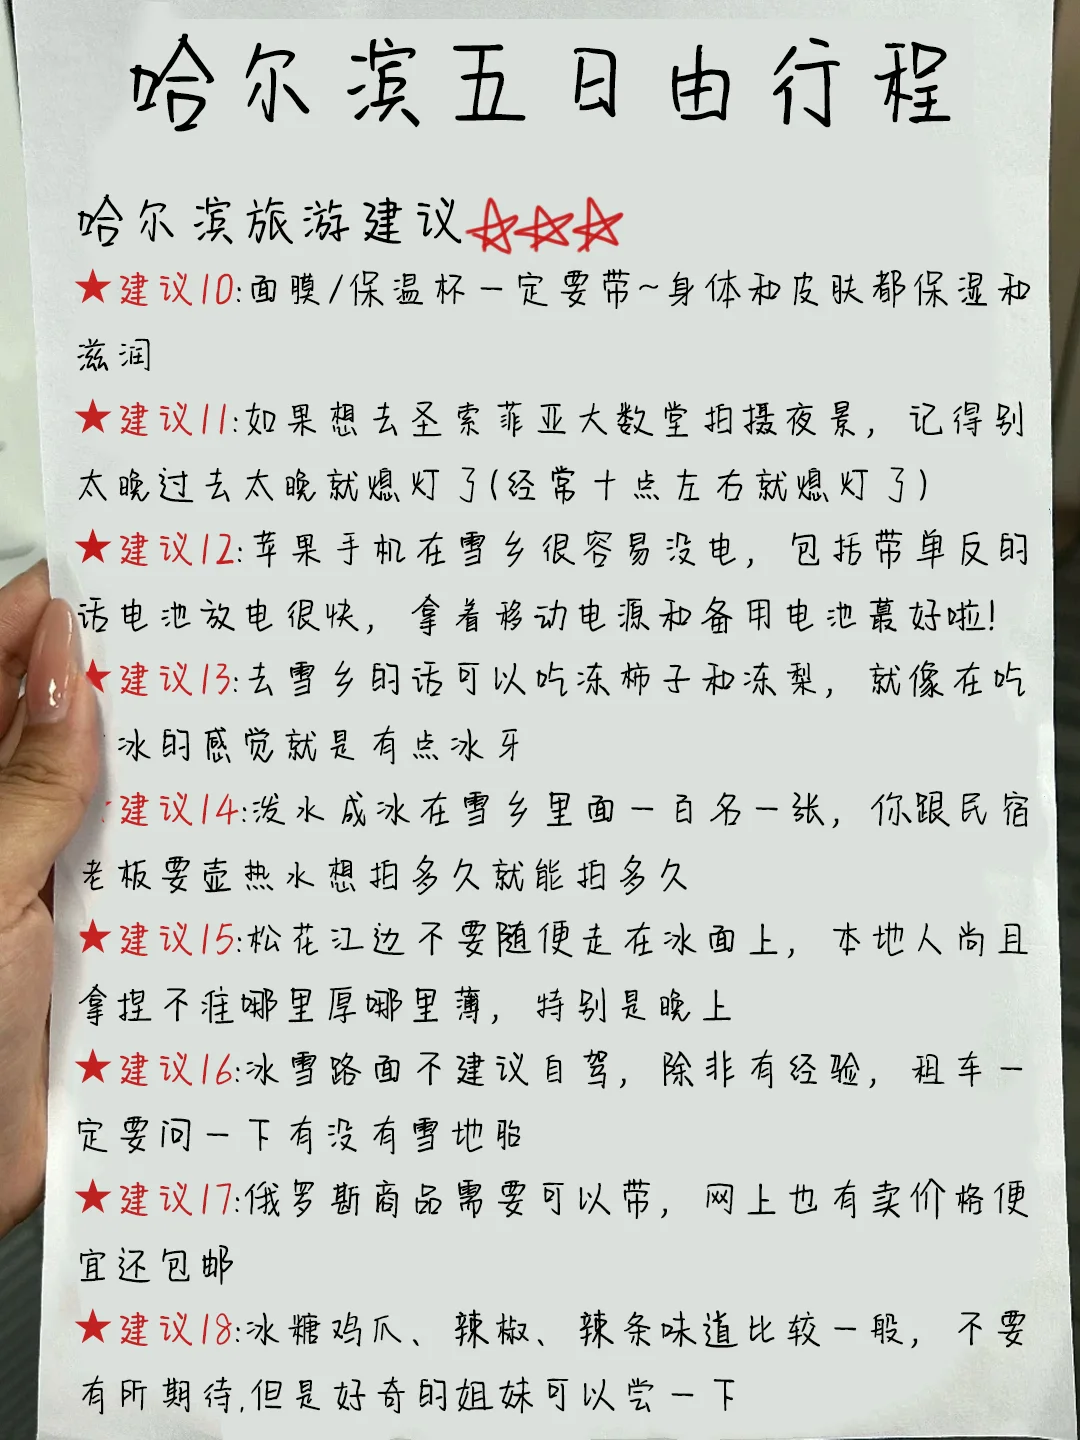 哈尔滨五日由行程
哈尔滨旅游建议
★建议10:面膜/保温杯一定要带~身体和皮肤都保湿和
滋润
★建议11:如果想去圣索菲亚大数堂拍摄夜景，记得别
太晚过去太晚就熄灯了(经常十点左右就熄灯了)
★建议12:苹果手机在雪乡很容易没电，包括带单反的
话电池放电很快，拿着移动电源和备用电池蕞好啦!
★建议13:去雪乡的话可以吃冻柿子和冻梨，就像在吃
冰的感觉就是有点冰牙
建议14:泼水成冰在雪乡里面一百名一张，你跟民宿
老板要壶热水想拍多久就能拍多久
★建议15:松花江边不要随便走在冰面上，本地人尚且
拿捏不准哪里厚哪里薄，特别是晚上
★建议16:冰雪路面不建议自驾，除非有经验，租车一
定要问一下有没有雪地胎
★建议17:俄罗斯商品需要可以带，网上也有卖价格便
宜还包邮
★建议18:冰糖鸡爪、辣椒、辣条味道比较一般，不要
有所期待,但是好奇的姐妹可以尝一下